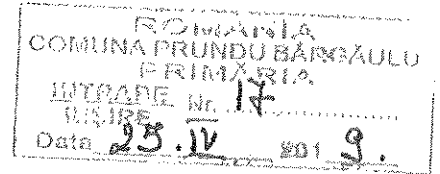 ROMÂNIA
COMUNA PRUNDU BÂRGĂULUI
PRIMĂRIA
INTRARE Nr. 17
IEȘIRE
Data 25.IV 2019.